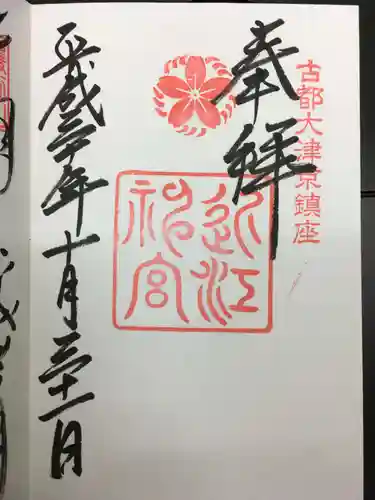 古都大津京鎮座
奉拝
近江神宮
平成三十年十月三十一日